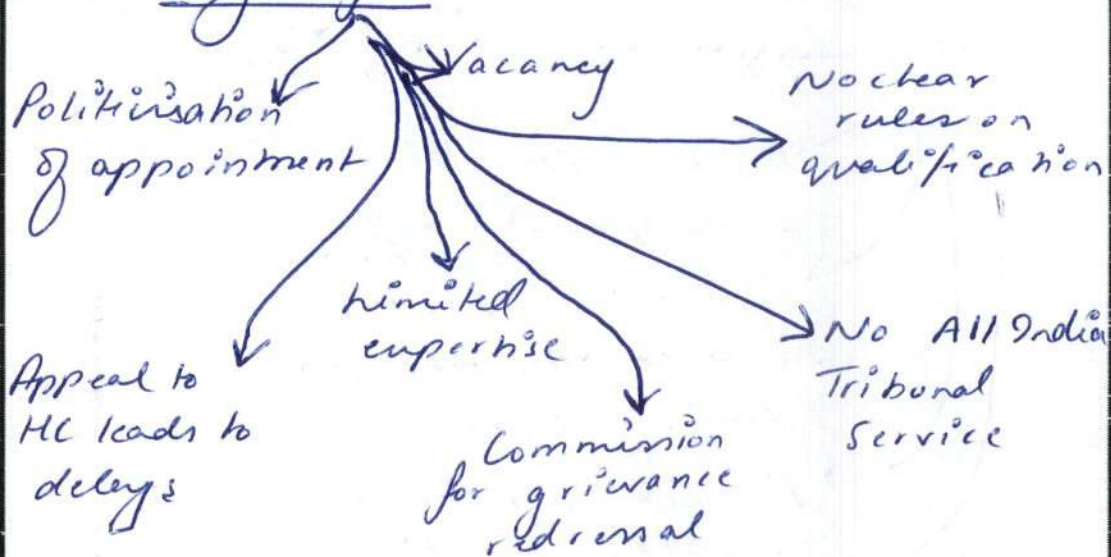 Vacancy
Politicisation
of appointment
No clear
rules on
qualification
Limited
expertise
No All India
Tribunal
Service
Appeal to
HC leads to
delays
Commission
for grievance
redressal